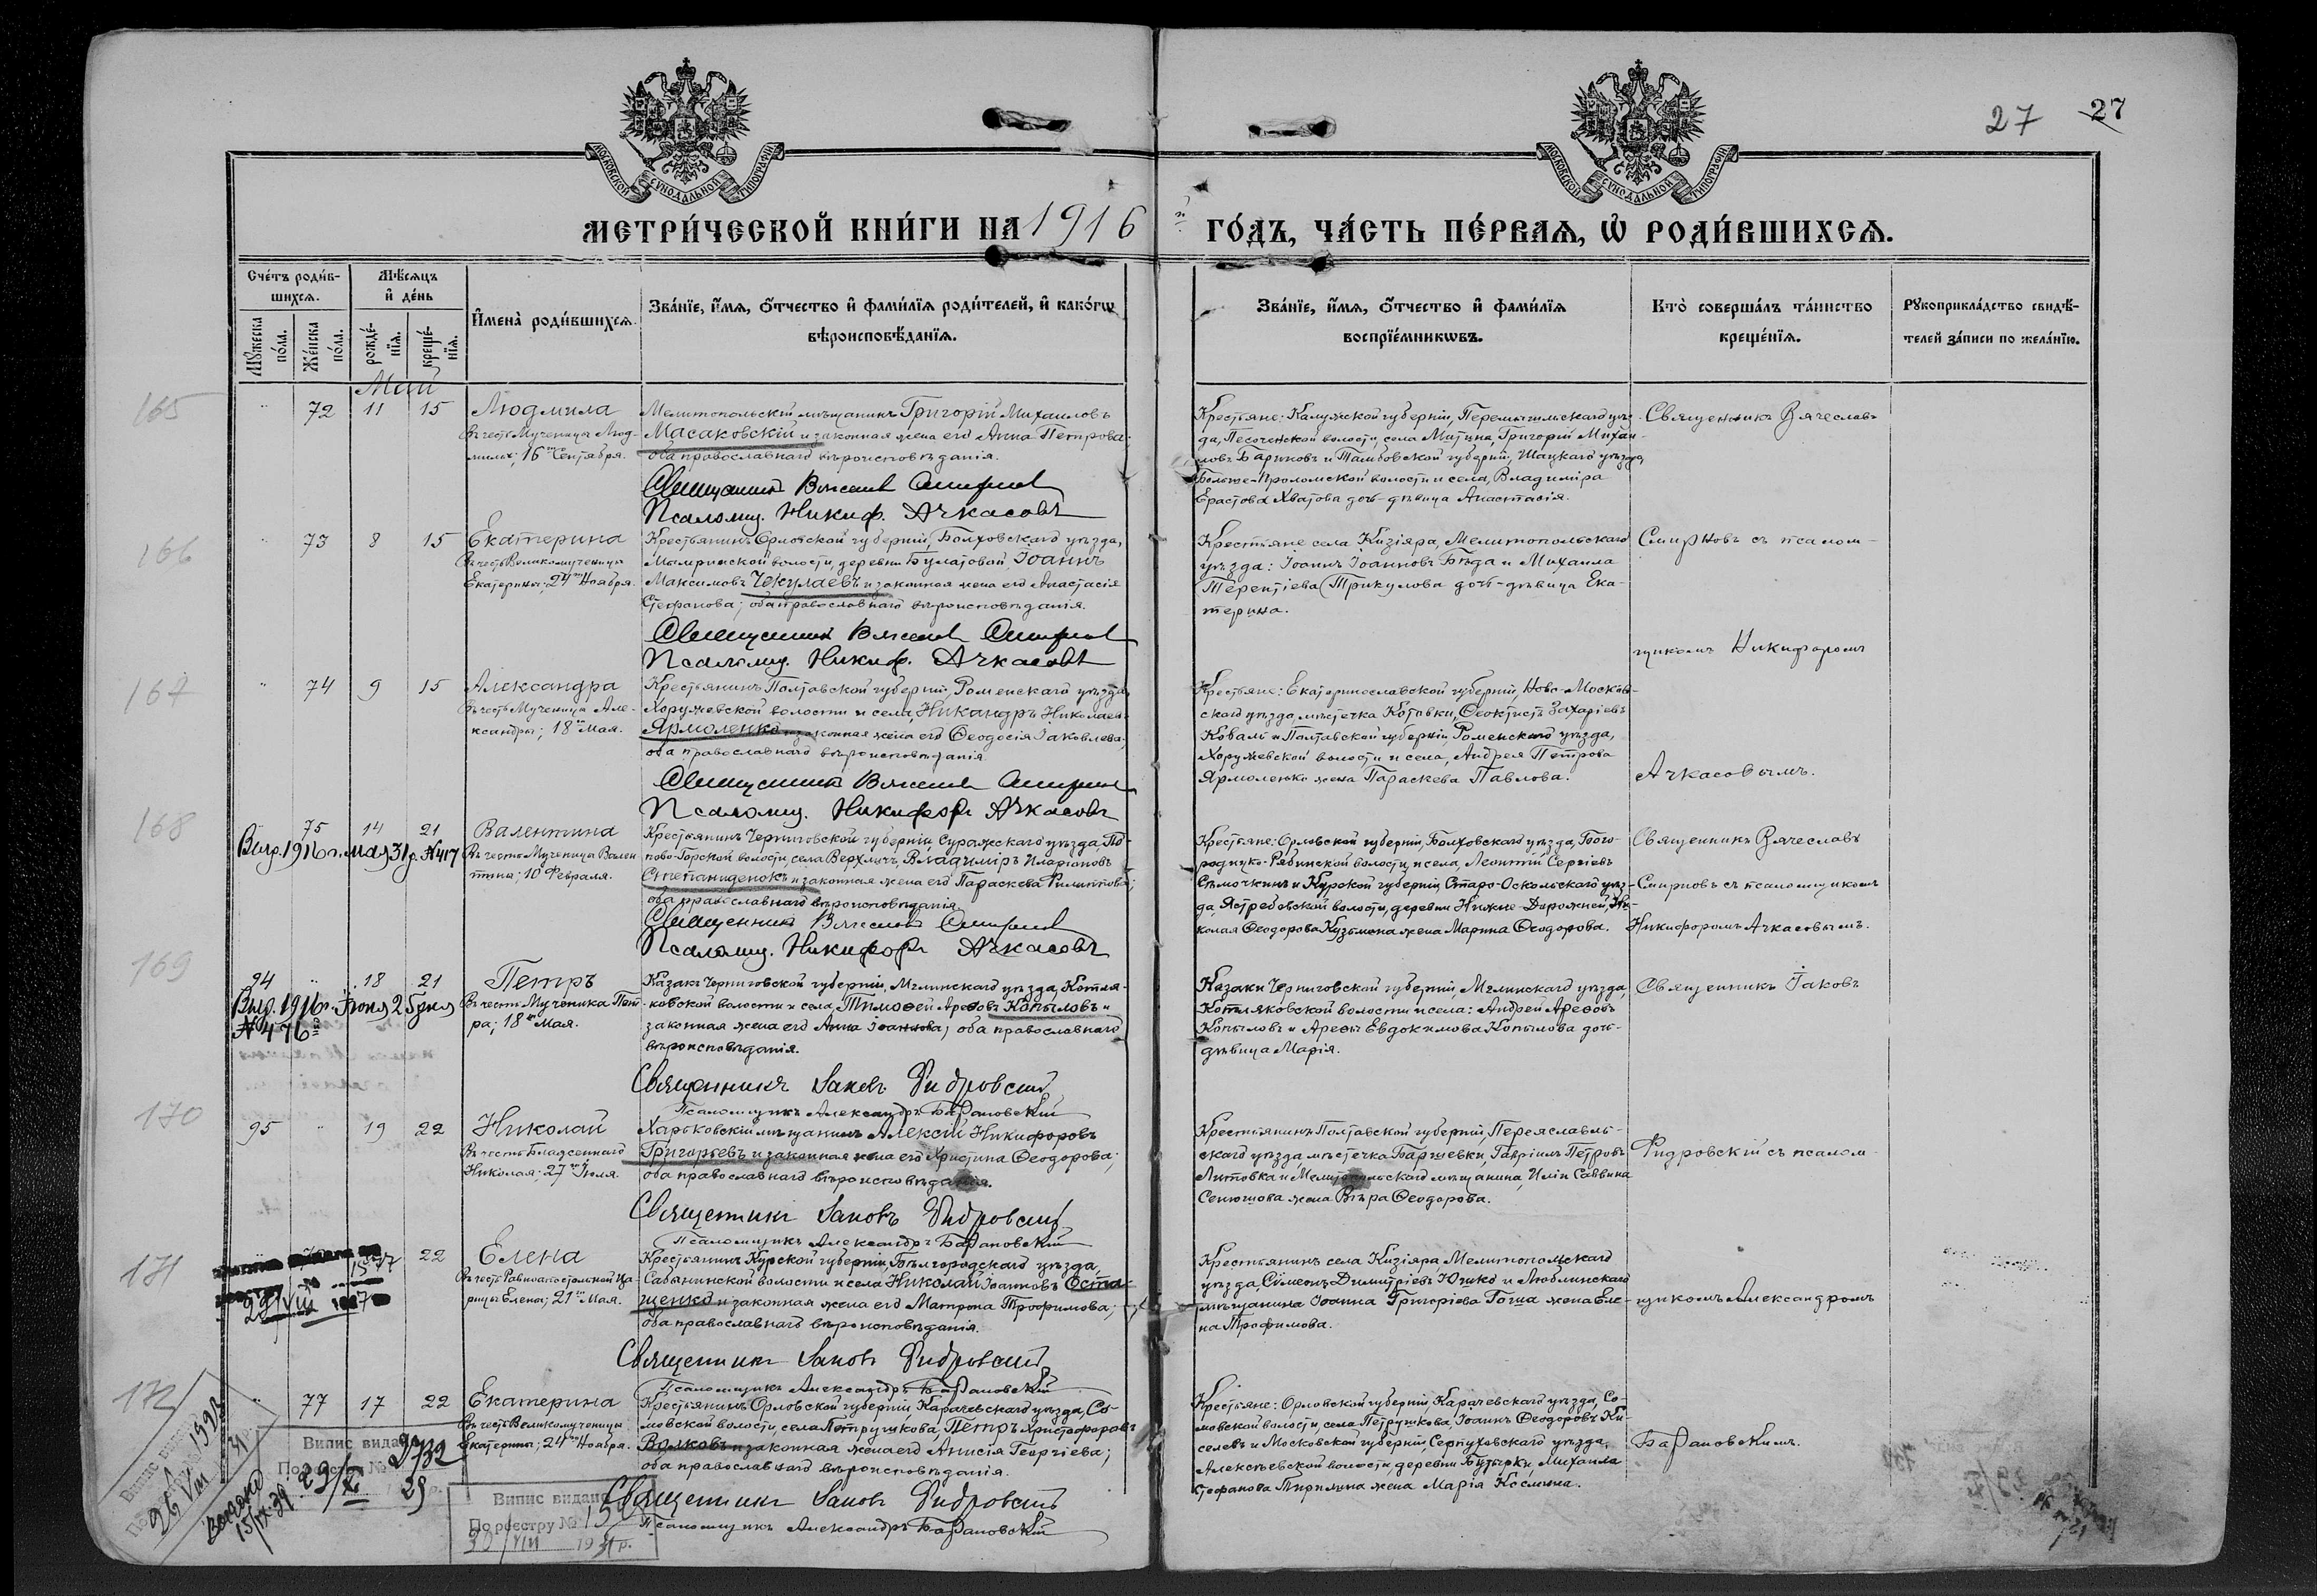 27 27
МОСКОВСКОЙ СУНОДАЛЬНОЙ ТИПОГРАФІИ
МОСКОВСКОЙ СУНОДАЛЬНОЙ ТИПОГРАФІИ
МЕТРИ́ЧЕСКОЙ КНИ́ГИ НА 1916 й ГО́ДЪ, ЧА́СТЬ ПЕ́РВАѦ, Ѽ РОДИ́ВШИХСѦ.
Сче́тъ роди́в-
шихсѧ.
Мꙋ́жеска по́ла.
Же́нска по́ла.
Мѣ́сѧцъ и де́нь
рожде́-нїѧ.
креще́-нїѧ.
И҆мена̀ роди́вшихсѧ.
Зва́нїе, и҆́мѧ, ѻ҆́тчество и҆ фами́лїѧ роди́телей, и҆ како́гѡ
вѣроисповѣ́данїѧ.
Зва́нїе, и҆́мѧ, ѻ҆́тчество и҆ фами́лїѧ
воспрїе́мникѡвъ.
Кто̀ соверша́лъ та́инство
креще́нїѧ.
Рꙋкоприкла́дство свидѣ́-
телей за́писи по жела́нїю.
Май
165
72 11 15
Людмила
Въ честь Мученицы Люд-
милы; 16го Сентября.
Мелитопольскій мѣщанинъ Григорій Михаиловъ
Масаковскій и законная жена его Анна Петрова;
оба православнаго вѣроисповѣданія.
Священникъ Вячеслав Смирнов
Псаломщ. Никиф. Ачкасовъ
Крестьяне: Калужской губерніи, Перемышльскаго уѣз-
да, Песоченской волости, села Митина, Григорій Михаи-
ловъ Бариновъ и Тамбовской губерніи, Шацкаго уѣзда,
Больше-Проломской волости и села, Владиміра
Ерастова Хватова дочь-дѣвица Анастасія.
Священникъ Вячеславъ
166
73 8 15
Екатерина
Въ честь Великомученицы
Екатерины; 24го Ноября.
Крестьянинъ Орловской губерніи, Болховскаго уѣзда,
Мымринской волости, деревни Булатовой Іоаннъ
Максимовъ Чекулаевъ и законная жена его Анастасія
Стефанова; оба православнаго вѣроисповѣданія.
Священникъ Вячеслав Смирнов
Псаломщ. Никиф. Ачкасовъ
Крестьяне села Кизіяра, Мелитопольскаго
уѣзда: Іоаннъ Іоанновъ Бѣда и Михаила
Терентіева Трикулова дочь-дѣвица Ека-
терина.
Смирновъ съ псалом-
щикомъ Никифоромъ
167
74 9 15
Александра
Въ честь Мученицы Але-
ксандры; 18го Мая.
Крестьянинъ Полтавской губерніи, Роменскаго уѣзда,
Хоружевской волости и села, Никандръ Николаев
Ярмоленко и законная жена его Ѳеодосія Іаковлева;
оба православнаго вѣроисповѣданія.
Священникъ Вячеслав Смирнов
Псаломщ. Никифоръ Ачкасовъ
Крестьяне: Екатеринославской губерніи, Ново-Москов-
скаго уѣзда, мѣстечка Котовки, Ѳеоктистъ Захаріевъ
Коваль и Полтавской губерніи, Роменскаго уѣзда,
Хоружевской волости и села, Андрея Петрова
Ярмоленко жена Параскева Павлова.
Ачкасовымъ.
168
75 14 21
Выд. 1916 г. мая 31 д. №417
Валентина
Въ честь Мученицы Вален-
тины; 10 Февраля.
Крестьянинъ Черниговской губерніи, Суражскаго уѣзда, По-
пово-Горской волости, села Верхличъ, Владиміръ Иларіоновъ
Степаниденокъ и законная жена его Параскева Филиппова;
оба православнаго вѣроисповѣданія.
Священникъ Вячеслав Смирнов
Псаломщ. Никифоръ Ачкасовъ
Крестьяне: Орловской губерніи, Болховскаго уѣзда, Бого-
родицко-Рябинской волости, и села, Леонтій Сергіевъ
Сѣмочкинъ и Курской губерніи, Старо-Оскольскаго уѣз-
да, Ястребовской волости, деревни Нижне-Дорожней, Ни-
колая Ѳеодорова Кузьмина жена Марина Ѳеодорова.
Священникъ Вячеславъ
Смирновъ съ псаломщикомъ
Никифоромъ Ачкасовымъ.
169
94 18 21
Выд. 1916 г. Іюня 2 дня
№476
Петръ
Въ честь Мученика Пет-
ра; 18го Мая.
Казакъ Черниговской губерніи, Мглинскаго уѣзда, Котля-
ковской волости и села, Тимоѳей Арефовъ Копыловъ и
законная жена его Анна Іоаннова; оба православнаго
вѣроисповѣданія.
Священникъ Іаковъ Фидровскій
Псаломщикъ Александръ Бабановскій
Казаки Черниговской губерніи, Мглинскаго уѣзда,
Котляковской волости и села: Андрей Арефовъ
Копыловъ и Арефы Евдокимова Копылова дочь-
дѣвица Марія.
Священникъ Іаковъ
170
95 19 22
Николай
Въ честь Блаженнаго
Николая; 27го Іюля.
Харьковскій мѣщанинъ Алексій Никифоровъ
Григорьевъ и законная жена его Христина Ѳеодорова;
оба православнаго вѣроисповѣданія.
Священникъ Іаковъ Фидровскій
Псаломщикъ Александръ Бабановскій
Крестьянинъ Полтавской губерніи, Переяславль-
скаго уѣзда, мѣстечка Барышевки, Гавріилъ Петровъ
Литовка и Мелитопольскаго мѣщанина, Иліи Саввина
Сенюшова жена Вѣра Ѳеодорова.
Фидровскій съ псалом-
171
22
Елена
Въ честь Равноапостольной Ца-
рицы Елены; 21го Мая.
Крестьянинъ Курской губерніи, Бѣлгородскаго уѣзда,
Сабынинской волости и села Николай Іоанновъ Оста-
щенко и законная жена его Матрона Трофимова;
оба православнаго вѣроисповѣданія.
Священникъ Іаковъ Фидровскій
Псаломщикъ Александръ Бабановскій
Крестьянинъ села Кизіяра Мелитопольскаго
уѣзда, Сѵмеонъ Димитріевъ Юшко и Люблинскаго
мѣщанина Іоанна Григоріева Гоша жена Еле-
на Трофимова.
щикомъ Александромъ
172
77 17 22
Екатерина
Въ честь Великомученицы
Екатерины; 24го Ноября.
Крестьянинъ Орловской губерніи Карачевскаго уѣзда, Со-
мовской волости, села Петрушкова, Петръ Христофоровъ
Волковъ и законная жена его Анисія Георгіева;
оба православнаго вѣроисповѣданія.
Священникъ Іаковъ Фидровскій
Псаломщикъ Александръ Бабановскій
Крестьяне: Орловской губерніи, Карачевскаго уѣзда, Со-
мовской волости, села Петрушкова, Іоаннъ Ѳеодоровъ Ки-
селевъ и Московской губерніи, Серпуховскаго уѣзда,
Алексѣевской волости деревни Бутырки, Михаила
Стефанова Тирилина жена Марія Косьмина.
Бабановскимъ.
Випис видано
По реєстру №
Випис видано
По реєстру №
30/VIII 1931 р.